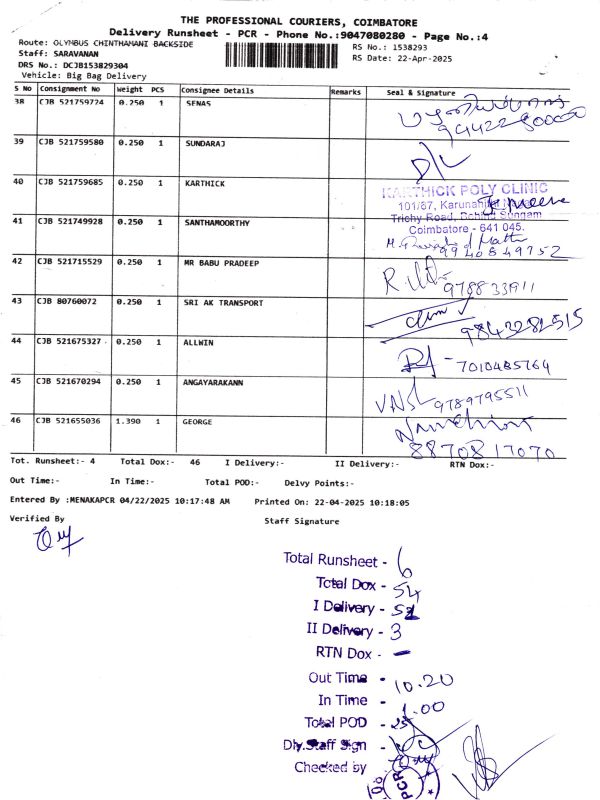 THE PROFESSIONAL COURIERS, COIMBATORE
Delivery Runsheet - PCR - Phone No.:9047080280 - Page No.:4
Route: OLYMBUS CHINTHAMANI BACKSIDE
RS No.: 1538293
Staff: SARAVANAN
RS Date: 22-Apr-2025
DRS No.: DCJB153829304
Vehicle: Big Bag Delivery
S No Consignment No Weight PCS Consignee Details Remarks Seal & Signature
38 CJB 521759724 0.250 1 SENAS
39 CJB 521759580 0.250 1 SUNDARAJ
D/L
40 CJB 521759685 0.250 1 KARTHICK
KARTHICK POLY CLINIC
101/67, Karunanidhi
Trichy Road, Sungam
Coimbatore - 641 045.
41 CJB 521749928 0.250 1 SANTHAMOORTHY
9940849752
42 CJB 521715529 0.250 1 MR BABU PRADEEP
978833911
43 CJB 80760072 0.250 1 SRI AK TRANSPORT
9843281515
44 CJB 521675327 0.250 1 ALLWIN
- 7010485764
45 CJB 521670294 0.250 1 ANGAYARAKANN
9789795511
46 CJB 521655036 1.390 1 GEORGE
8870817070
Tot. Runsheet:- 4 Total Dox:- 46 I Delivery:- II Delivery:- RTN Dox:-
Out Time:- In Time:- Total POD:- Delvy Points:-
Entered By :MENAKAPCR 04/22/2025 10:17:48 AM Printed On: 22-04-2025 10:18:05
Verified By Staff Signature
Total Runsheet - 6
Total Dox - 54
I Delivery - 51
II Delivery - 3
RTN Dox - -
Out Time - 10.20
In Time - 1.00
Total POD - 25
Dly.Staff Sign -
Checked by
PCR